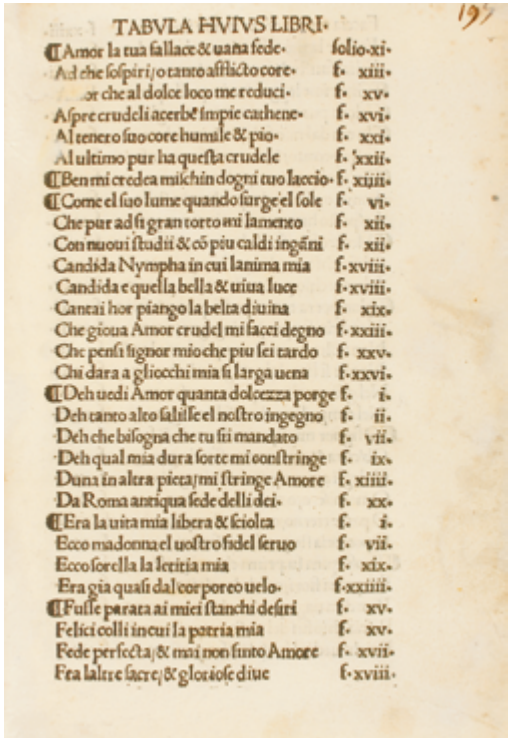 195
TABVLA HVIVS LIBRI.
⁋Amor la tua fallace & uana fede. folio.xi.
Ad che sospiri/o tanto afflicto core. f. xiii.
or che al dolce loco me reduci. f. xv.
Aspre crudeli acerbe impie cathene. f. xvi.
Al tenero suo core humile & pio. f. xxi.
Al ultimo pur ha questa crudele f. xxii.
⁋Ben mi credea mischin dogni tuo laccio. f. xiiii.
⁋Come el suo lume quando surge el sole f. vi.
Che pur ad si gran torto mi lamento f. xii.
Con nuoui studii & cō piu caldi ingāni f. xii.
Candida Nympha in cui lanima mia f.xviii.
Candida e quella bella & uiua luce f.xviii.
Cantai hor piango la belta diuina f. xix.
Che gioua Amor crudel mi facci degno f.xxiii.
Che pensi signor mio che piu sei tardo f. xxv.
Chi dara a gliocchi mia si larga uena f.xxvi.
⁋Deh uedi Amor quanta dolcezza porge f. i.
Deh tanto alto salisse el nostro ingegno f. ii.
Deh che bisogna che tu sii mandato f. vii.
Deh qual mia dura sorte mi constringe f. ix.
Duna in altra pieta/mi stringe Amore f. xiiii.
Da Roma antiqua sede delli dei. f. xx.
⁋Era la uita mia libera & sciolta f. i.
Ecco madonna el uostro fidel seruo f. vii.
Ecco sorella la letitia mia f. xix.
Era gia quasi dal corporeo uelo. f.xxiiii.
⁋Fusse parata ai miei stanchi desiri f. xv.
Felici colli in cui la patria mia f. xv.
Fede perfecta/& mai non finto Amore f. xvii.
Fra laltre sacre/& gloriose diue f.xviii.